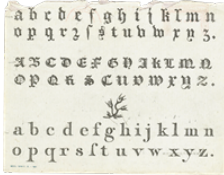 a b c d e f g h i j k l m n
o p q r ꝛ s ſ t u v w x y z.
A B C D E F G H I J K L M N
O P Q R S C U V W X Y Z.
a b c d e f g h i j k l m n
o p q r s ſ t u v w x y z.